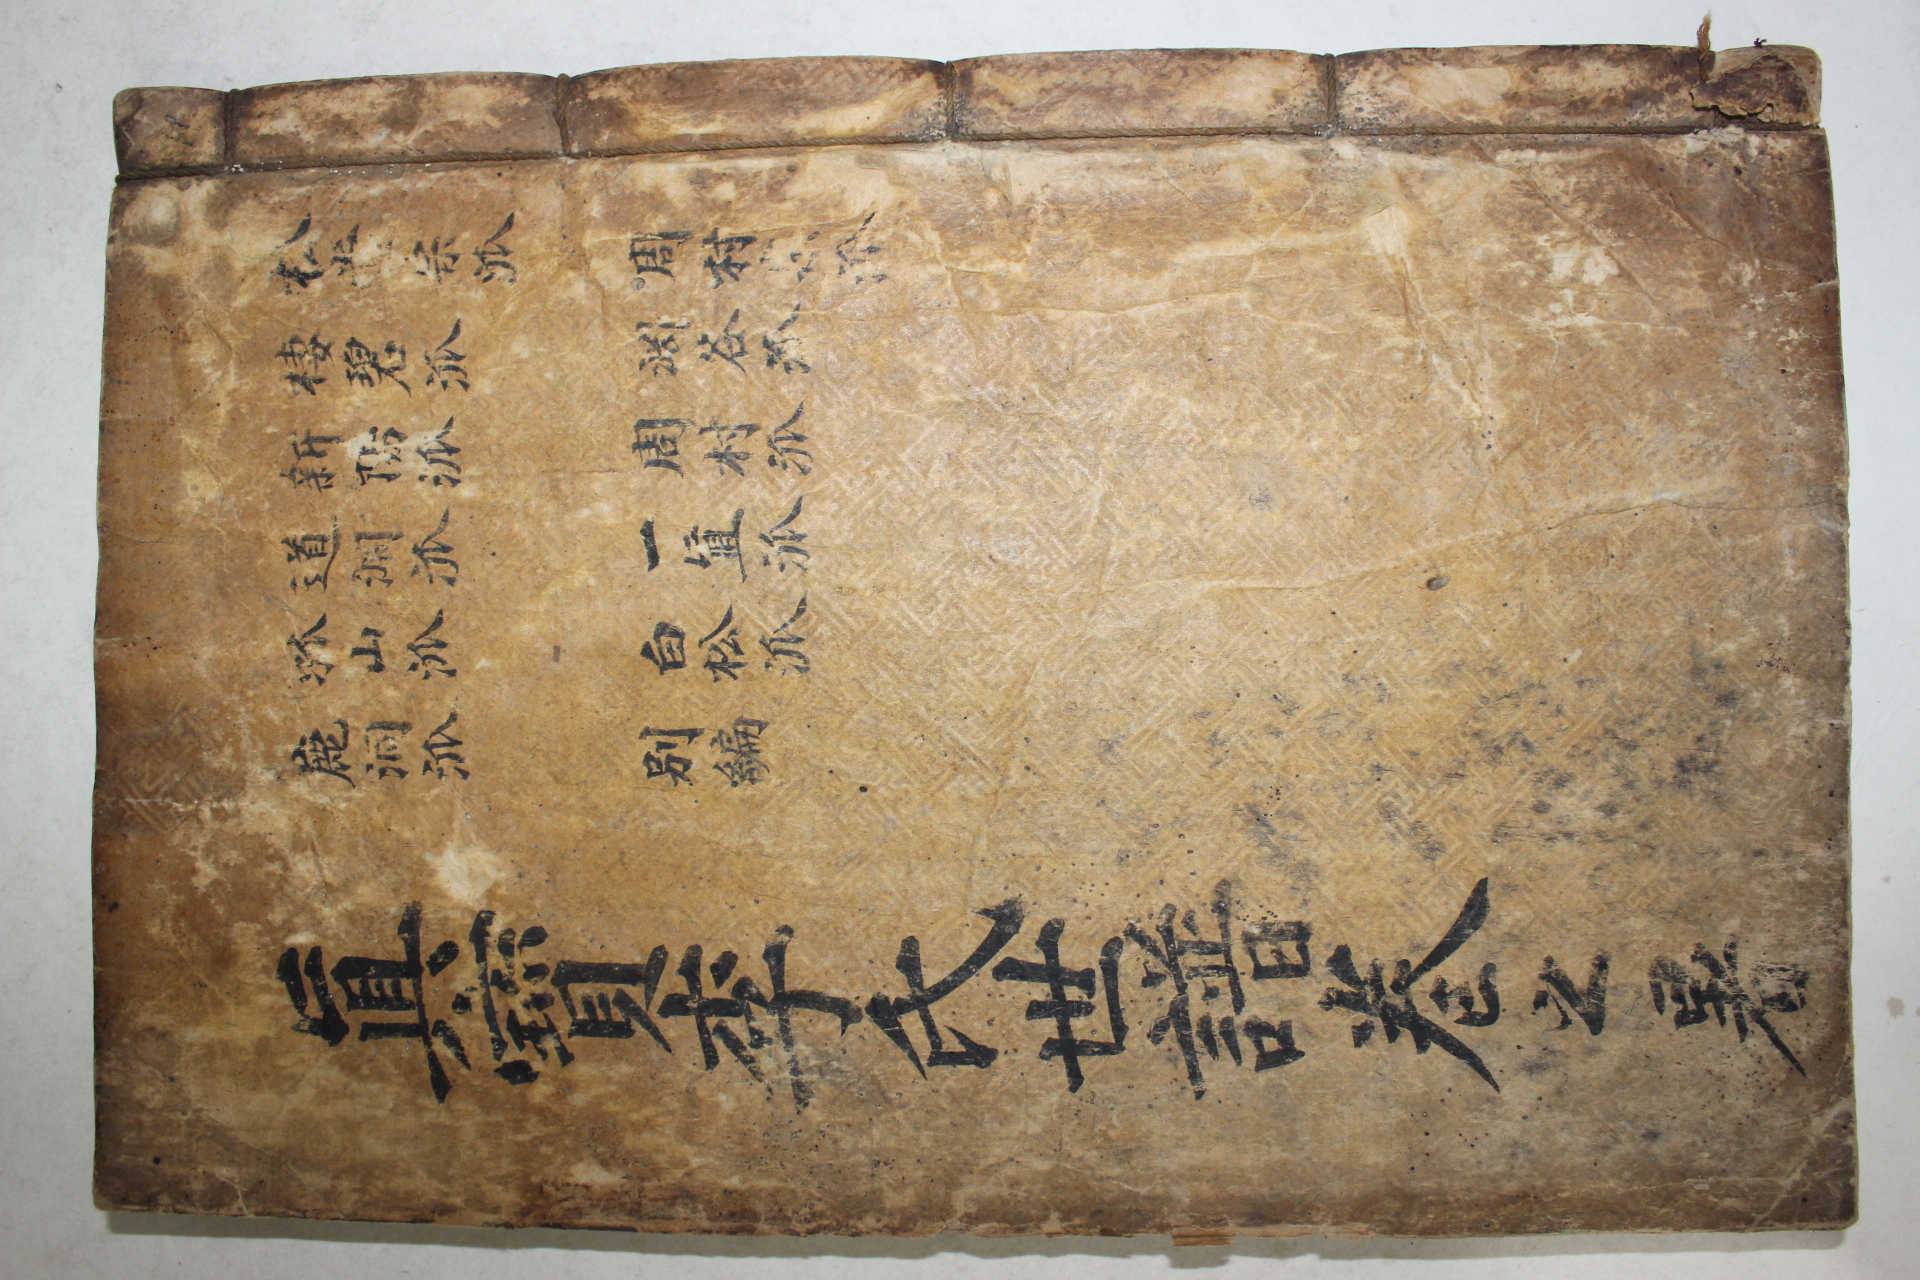 松 宗派 周村 派
棲碧派 谷派
新 派 周村派
道 派 一直派
孤山派 白松派
鹿洞派 別編
眞寶李氏世譜卷之